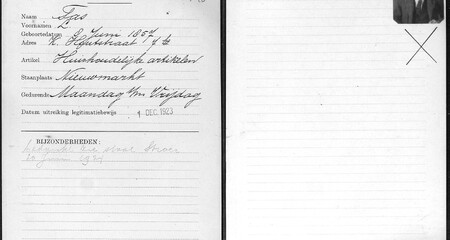 Naam Tas
Voornamen L.
Geboortedatum 8 Juni 1857
Adres K. Houtstraat 7 hs
Artikel Huishoudelijke artikelen
Staanplaats Nieuwmarkt
Gedurende Maandag t/m Vrijdag
Datum uitreiking legitimatiebewijs 1 DEC. 1923
BIJZONDERHEDEN: